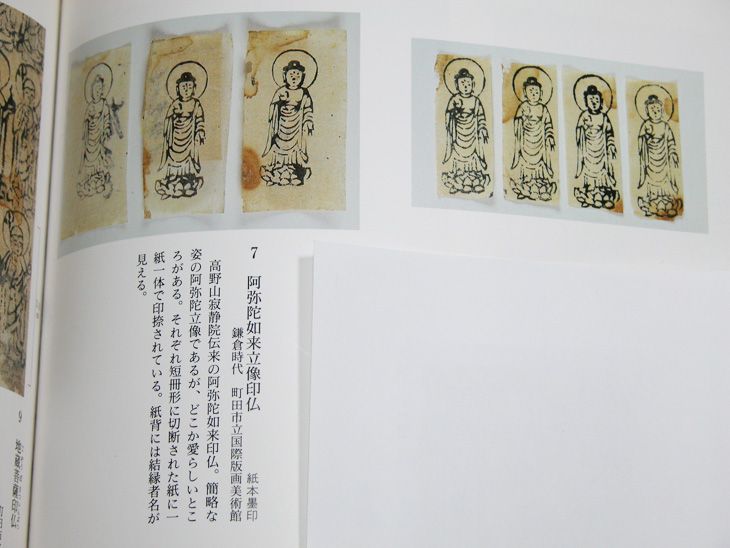 7 阿弥陀如来立像印仏
紙本墨印
鎌倉時代 町田市立国際版画美術館
高野山寂静院伝来の阿弥陀如来印仏。簡略な
姿の阿弥陀立像であるが、どこか愛らしいとこ
ろがある。それぞれ短冊形に切断された紙に一
紙一体で印捺されている。紙背には結縁者名が
見える。
9 地蔵菩薩印仏
町田